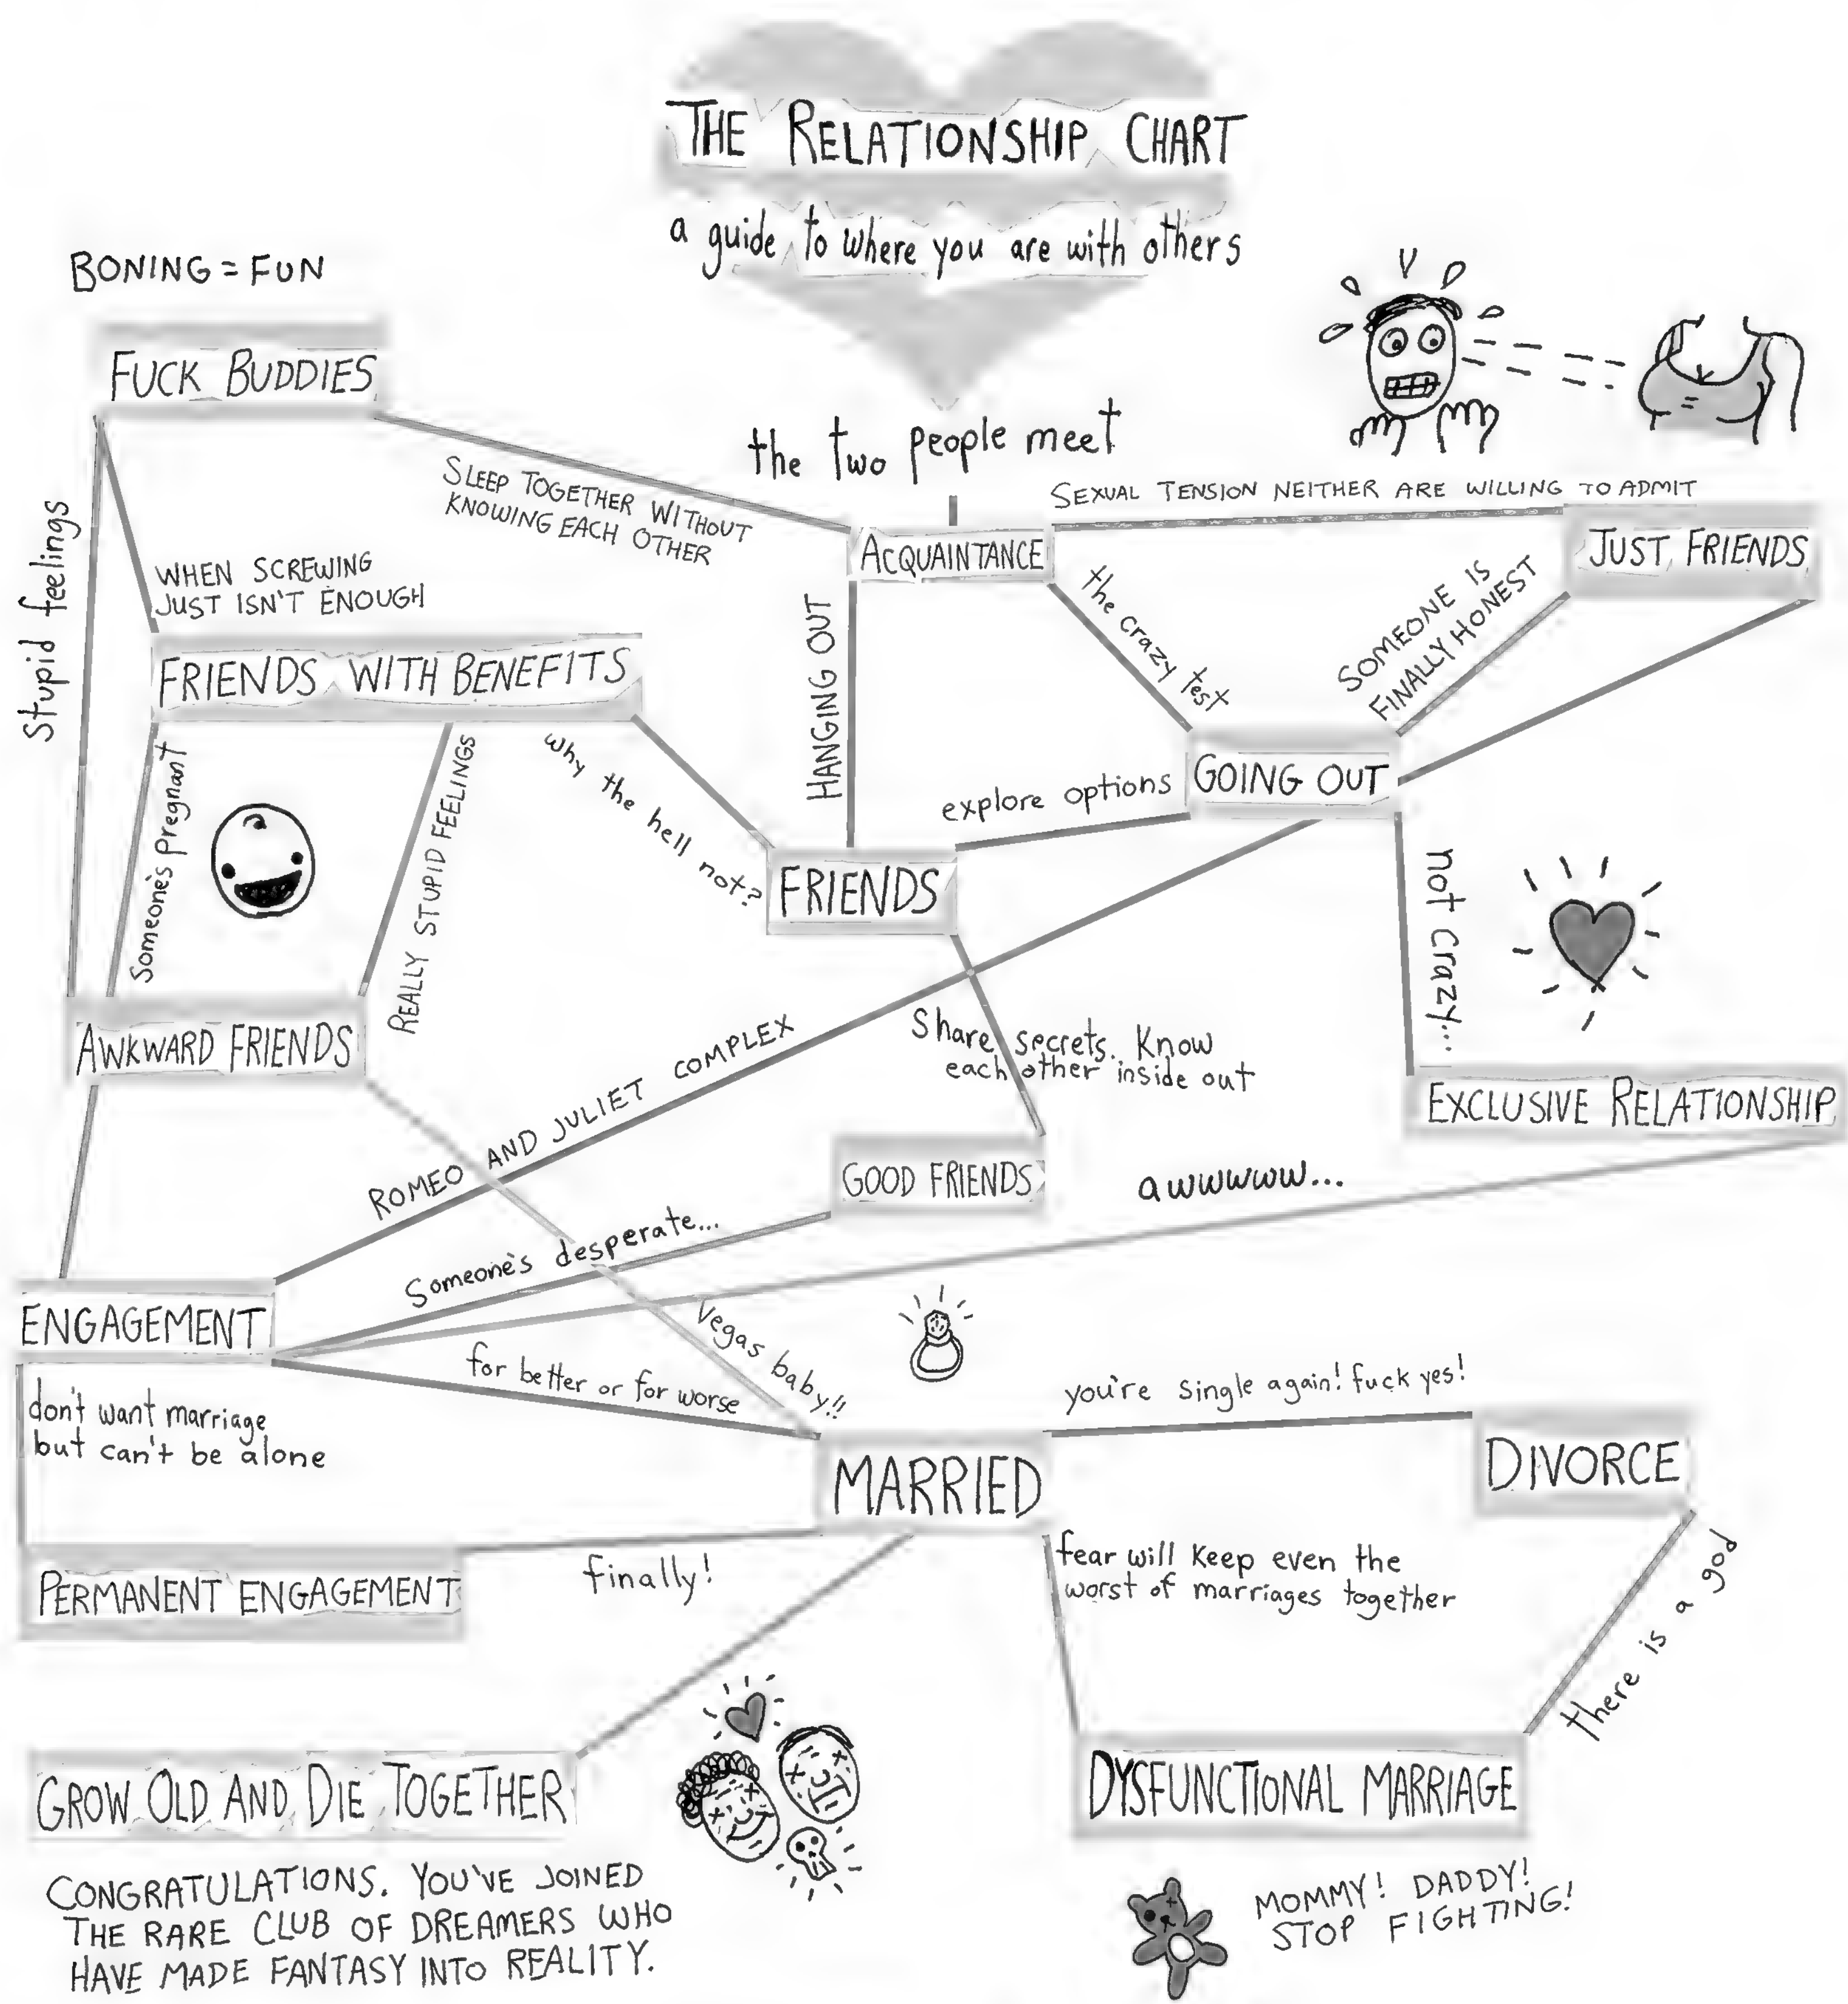 THE RELATIONSHIP CHART
a guide to where you are with others
BONING = FUN
FUCK BUDDIES
the two people meet
SLEEP TOGETHER WITHOUT
KNOWING EACH OTHER
SEXUAL TENSION NEITHER ARE WILLING TO ADMIT
ACQUAINTANCE
JUST FRIENDS
Stupid feelings
WHEN SCREWING
JUST ISN'T ENOUGH
the crazy test
SOMEONE IS
FINALLY HONEST
HANGING OUT
FRIENDS WITH BENEFITS
Someone's Pregnant
REALLY STUPID FEELINGS
Why the hell not?
explore options
GOING OUT
FRIENDS
not crazy...
AWKWARD FRIENDS
ROMEO AND JULIET COMPLEX
Share secrets. Know
each other inside out
EXCLUSIVE RELATIONSHIP
GOOD FRIENDS
awwwww...
Someone's desperate...
ENGAGEMENT
Vegas baby!!
for better or for worse
don't want marriage
but can't be alone
you're single again! fuck yes!
MARRIED
DIVORCE
finally!
fear will keep even the
worst of marriages together
there is a god
PERMANENT ENGAGEMENT
GROW OLD AND DIE TOGETHER
DYSFUNCTIONAL MARRIAGE
CONGRATULATIONS. YOU'VE JOINED
THE RARE CLUB OF DREAMERS WHO
HAVE MADE FANTASY INTO REALITY.
MOMMY! DADDY!
STOP FIGHTING!